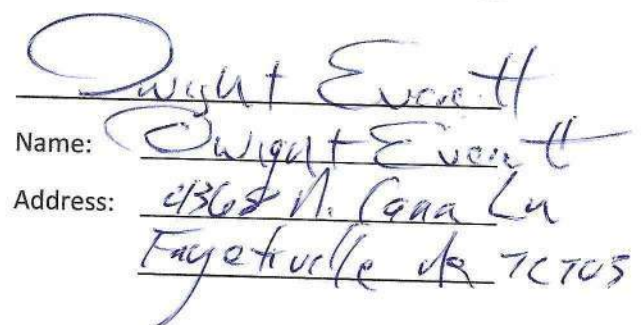 Dwight Everett
Name: Dwight Everett
Address: 4368 N. Cana Ln
Fayetteville AR 72703